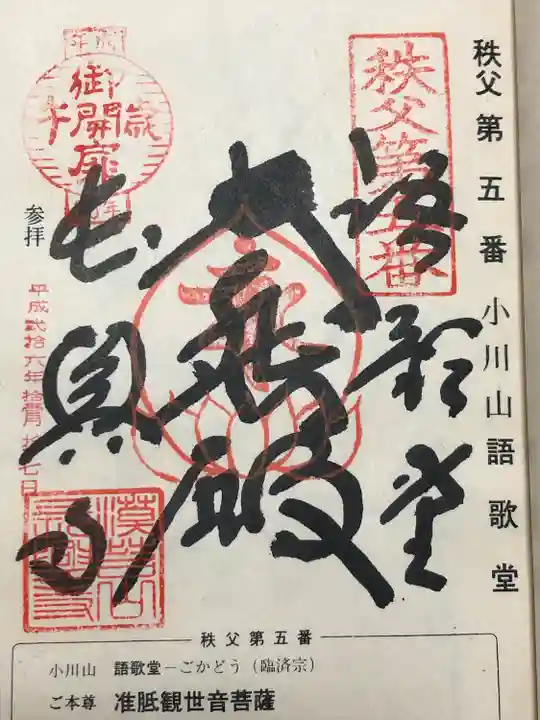 秩父第五番 小川山語歌堂
秩父第五番
語歌堂
大悲殿
長興寺
午歳
御開扉
参拝
平成弐拾六年拾壹月拾七日
秩父第五番
小川山 語歌堂－ごかどう（臨済宗）
ご本尊 准胝観世音菩薩